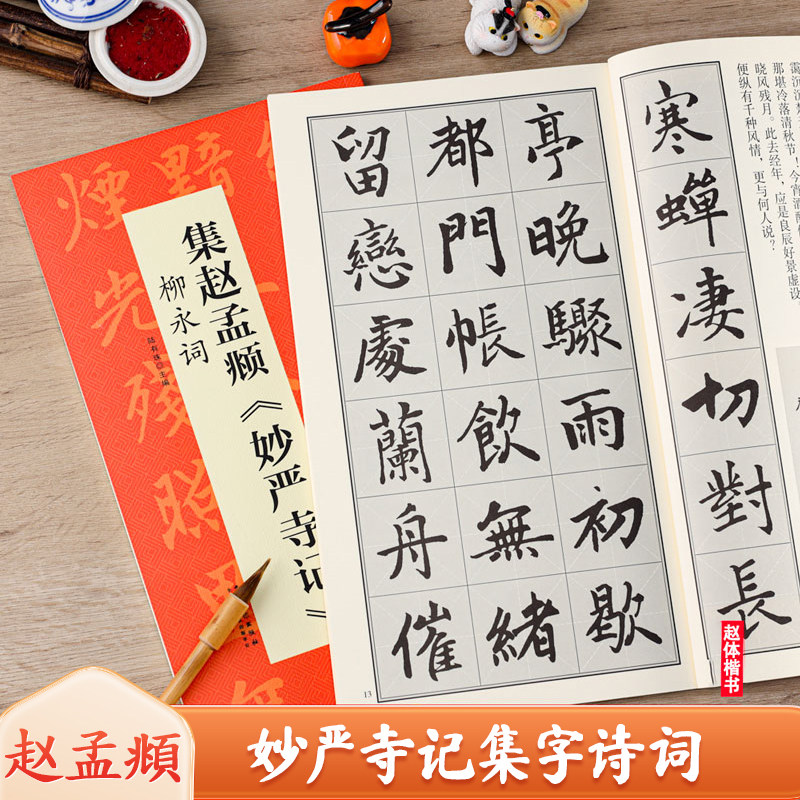 煙光殘照
黯
無
集赵孟頫《妙严寺记》
柳永词
陆有珠 主编
霭沉沉
那堪冷落清秋节！今宵酒醒
晓风残月。此去经年，应是良辰好景虚设
便纵有千种风情，更与何人说？
寒蟬淒切對長
亭晚驟雨初歇
都門帳飲無緒
留戀處蘭舟催
13
赵体楷书
赵孟頫
妙严寺记集字诗词